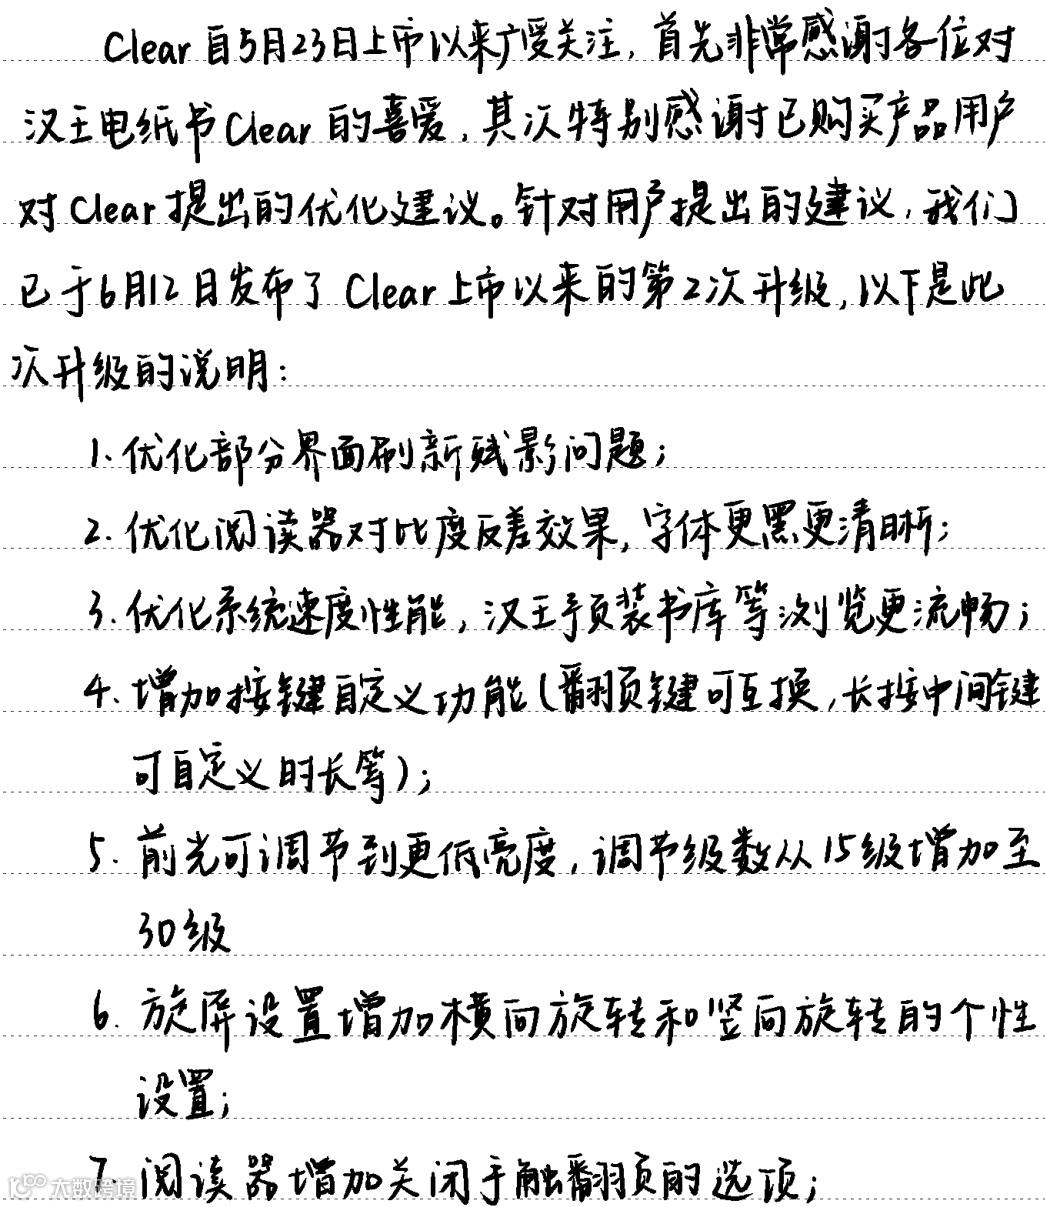 Clear自5月23日上市以来广受关注，首先非常感谢各位对
汉王电纸书Clear的喜爱，其次特别感谢已购买产品用户
对Clear提出的优化建议。针对用户提出的建议，我们
已于6月12日发布了Clear上市以来的第2次升级，以下是此
次升级的说明：
1.优化部分界面刷新残影问题；
2.优化阅读器对比度反差效果，字体更黑更清晰；
3.优化系统速度性能，汉王预装书库等浏览更流畅；
4.增加按键自定义功能（翻页键可互换，长按中间键
可自定义时长等）；
5.前光可调节到更低亮度，调节级数从15级增加至
30级
6.旋屏设置增加横向旋转和竖向旋转的个性
设置；
7.阅读器增加关闭手触翻页的选项；
大数跨境